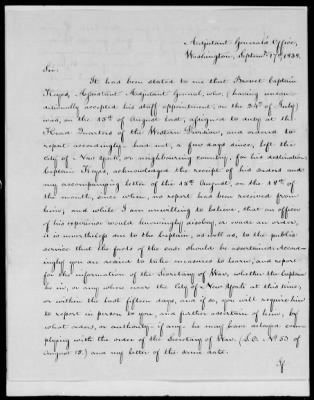 Adjutant General's Office,
Washington, Septemr. 17th 1838.
Sir:
It had been stated to me that Brevet Captain
Keyes, Assistant Adjutant General, who, (having
accepted his staff appointment, on the 24th of July)
was, on the 13th of August last, assigned to duty at the
Head Quarters of the Western Division, and ordered to
report accordingly had not, a few days since, left the
City of New York, or neighbouring country, for his destination.
Captain Keyes, acknowledged the receipt of his orders and
my accompanying letter of the 13th August, on the 18th of
the month, since when, no report has been received from
him; and while I am unwilling to believe, that an officer
of his experience would knowingly disobey, or evade an order,
it is nevertheless due to the Captain, as well as, to the public
service that the facts of the case should be ascertained. Accor-
ingly you are desired to take measures to learn, and report
for the information of the Secretary of War, whether the Captain
be in, or any where near the City of New York at this time,
or within the last fifteen days, and if so, you will require him
to report in person to you, and further ascertain of him, by
what orders, or authority, if any he may have delayed com-
plying with the order of the Secretary of War, (S.O. No. 53 of
August 13.) and my letter of the same date.
If